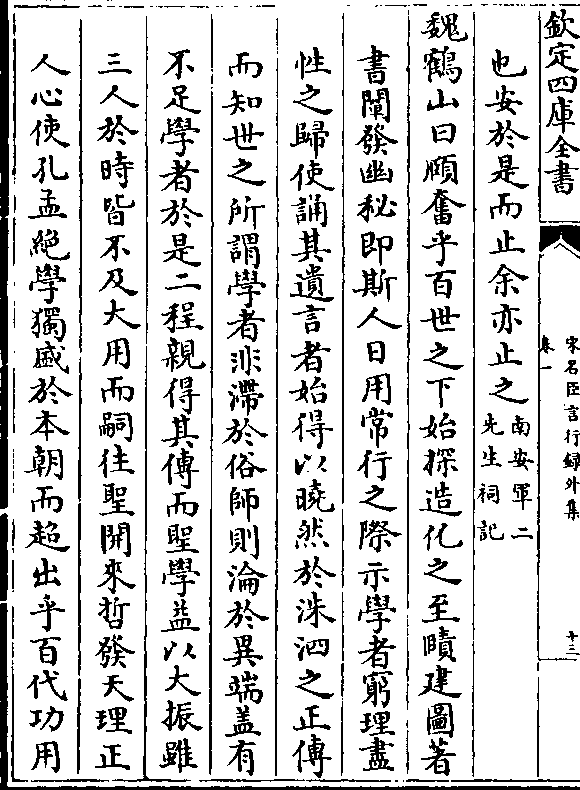 欽定四庫全書
宋名臣言行録外集
卷一
十三
也安於是而止余亦止之南安軍二先生祠記
魏鶴山曰頤奮乎百世之下始探造化之至賾建圖著
書闡發幽秘即斯人日用常行之際示學者窮理盡
性之歸使誦其遺言者始得以曉然於洙泗之正傳
而知世之所謂學者非滯於俗師則淪於異端盖有
不足學者於是二程親得其傳而聖學益以大振雖
三人於時皆不及大用而嗣徃聖開來哲發天理正
人心使孔孟絶學獨盛於本朝而超出乎百代功用